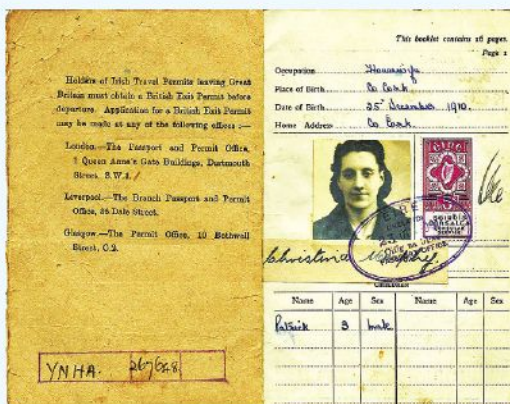 Holders of Irish Travel Permits leaving Great
Britain must obtain a British Exit Permit before
departure. Application for a British Exit Permit
may be made at any of the following offices :—
London.—The Passport and Permit Office,
1 Queen Anne's Gate Buildings, Dartmouth
Street, S.W.1.
Liverpool.—The Branch Passport and Permit
Office, 36 Dale Street.
Glasgow.—The Permit Office, 10 Bothwell
Street, C.2.
YNHA. 267648
This booklet contains 16 pages.
Page 1
Occupation Housewife
Place of Birth Co Cork
Date of Birth 25 December 1910.
Home Address Co Cork
EIRE
OFFICE
Christina
CHILDREN
Name Age Sex Name Age Sex
Patrick 3 male